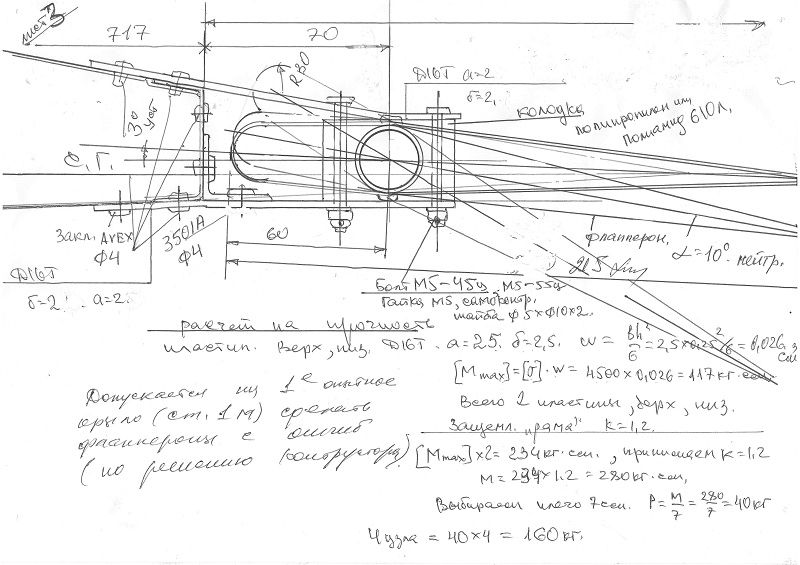 лист 3
717
70
R30
Д16Т а=2
δ=2,
колодка
полипропилен или
полиамид 610Л,
3°
С.Г.
Закл. AVEX
Ф4
3501А
Ф4
60
Д16Т
δ=2 а=2.
флапперон,
α=10° нейтр.
Болт М5-45ц, М5-55ц
Гайка М5, самоконтр.
шайба Ф5хФ10х2.
расчет на прочность
пластин. верх, низ. Д16Т. а=25. δ=2,5. w = bh²/6 = 2,5х0,25²/6 = 0,026
[M max]=[σ]·w = 4500х0,026=117 кг·см
Всего 2 пластины, верх, низ.
Защемл. "рама" к=1,2.
[M max]х2= 234 кг.см., принимаем к=1,2
М = 234х1.2 = 280 кг.см,
Выбираем плечо 7см. P= М/7 = 280/7 = 40 кг
4 узла = 40х4 = 160 кг.
Допускается на 1е опытное
крыло (ст. 1м) сделать
флаппероны с
(по решению конструктора)